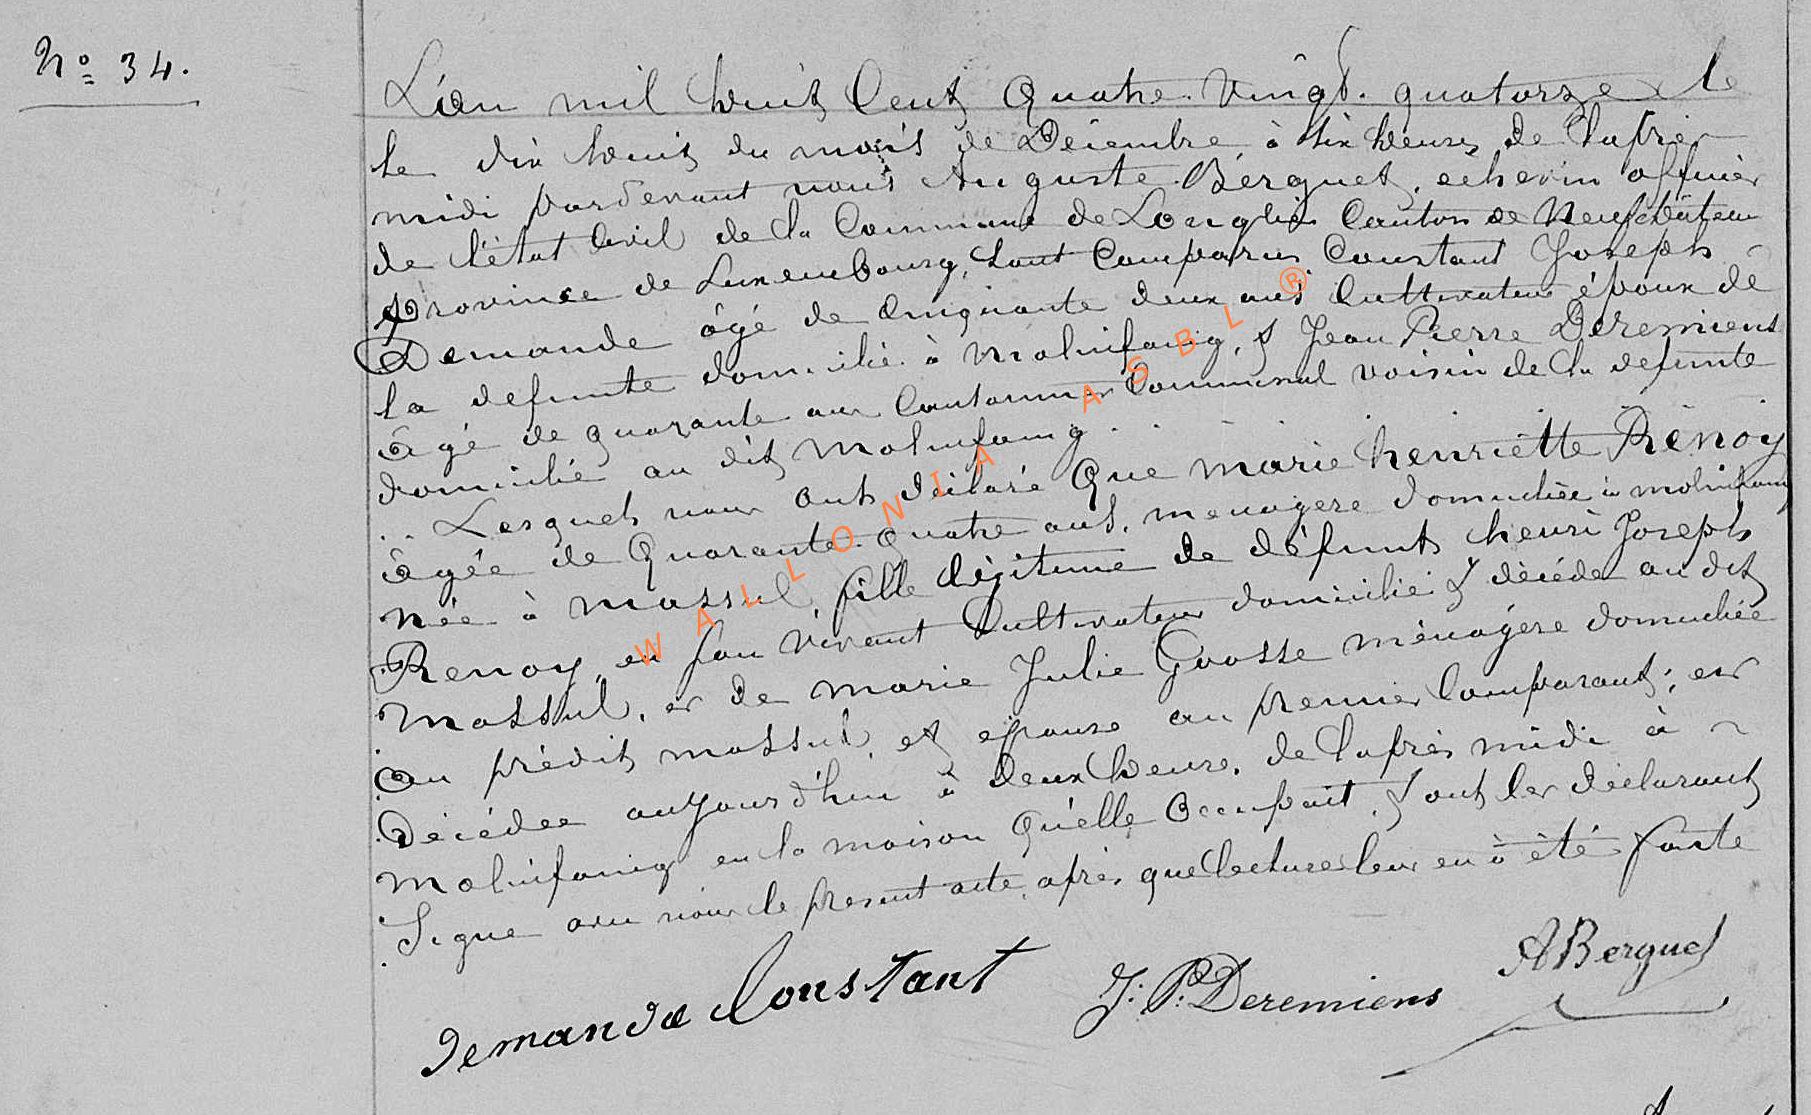 N° 34.
L'an mil huit Cent Quatre-Vingt-quatorze le
le dix huit du mois de Décembre à six heures de l'après
midi pardevant nous Auguste Berguet, echevin officier
de l'état Civil de la Commune de Longlier Canton de Neufchâteau
province de Luxembourg, sont Comparus Constant Joseph
Demande âgé de cinquante deux ans Cultivateur époux de
la defunte domicilié à Molinfaing, & Jean Pierre Deremiens
âgé de quarante ans Cantonnier Communal voisin de la defunte
domicilié au dit Molinfaing
Lesquels nous ont déclaré Que marie henriette Renoy
âgée de Quarante-quatre ans, menagere domiciliée à molinfaing
née à massul, fille légitime de défunt henri Joseph
Renoy en son vivant Cultivateur domicilié & décédé au dit
Massul, et de marie Julie Goosse ménagère domiciliée
au prédit massul, et epouse au premier Comparant; est
Décédée aujourd'hui à deux heures, de l'après midi à
Molinfaing en la maison qu'elle occupait, & ont les déclarants
Signé avec nous le present acte, après que lecture leur en à été faite
demande Constant
J: P: Deremiens
ABerguet
WALLONIA ASBL ®